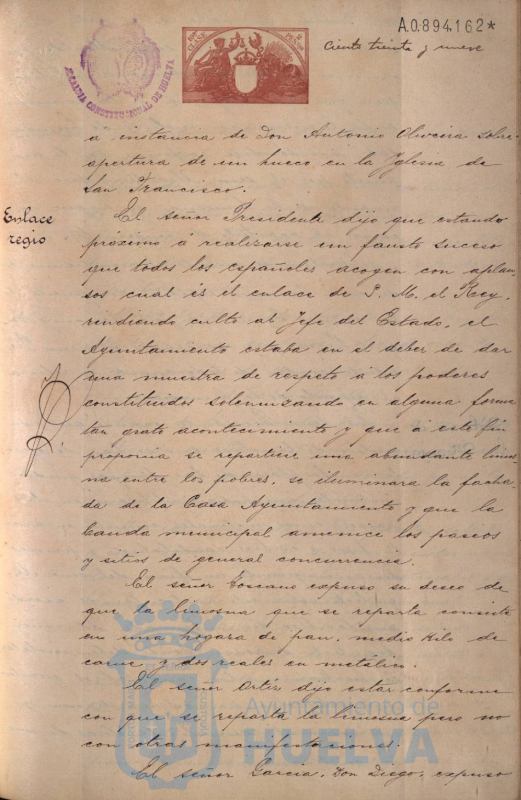 A.0.894.162*
Ciento treinta y nueve
ALCALDIA CONSTITUCIONAL DE HUELVA
á instancia de Don Antonio Oliveira sobre
apertura de un hueco en la Iglesia de
San Francisco.
Enlace
regio
El señor Presidente dijo que estando
próximo á realizarse un fausto suceso
que todos los españoles acogen con aplau-
sos cual és el enlace de S. M. el Rey,
rindiendo culto al Jefe del Estado, el
Ayuntamiento estaba en el deber de dar
una muestra de respeto á los poderes
constituidos solemnizando en alguna forma
tan grato acontecimiento y que á este fin
proponia se repartiese una abundante limos-
na entre los pobres, se iluminara la facha-
da de la Casa Ayuntamiento y que la
banda municipal amenice los paseos
y sitios de general concurrencia.
El señor Toscano expuso su deseo de
que la limosna que se reparta consista
en una hogaza de pan, medio kilo de
carne y dos reales en metálico.
El señor Ortiz dijo estar conforme
con que se reparta la limosna pero no
con otras manifestaciones.
El señor Garcia, Don Diego, expuso
Ayuntamiento de
HUELVA